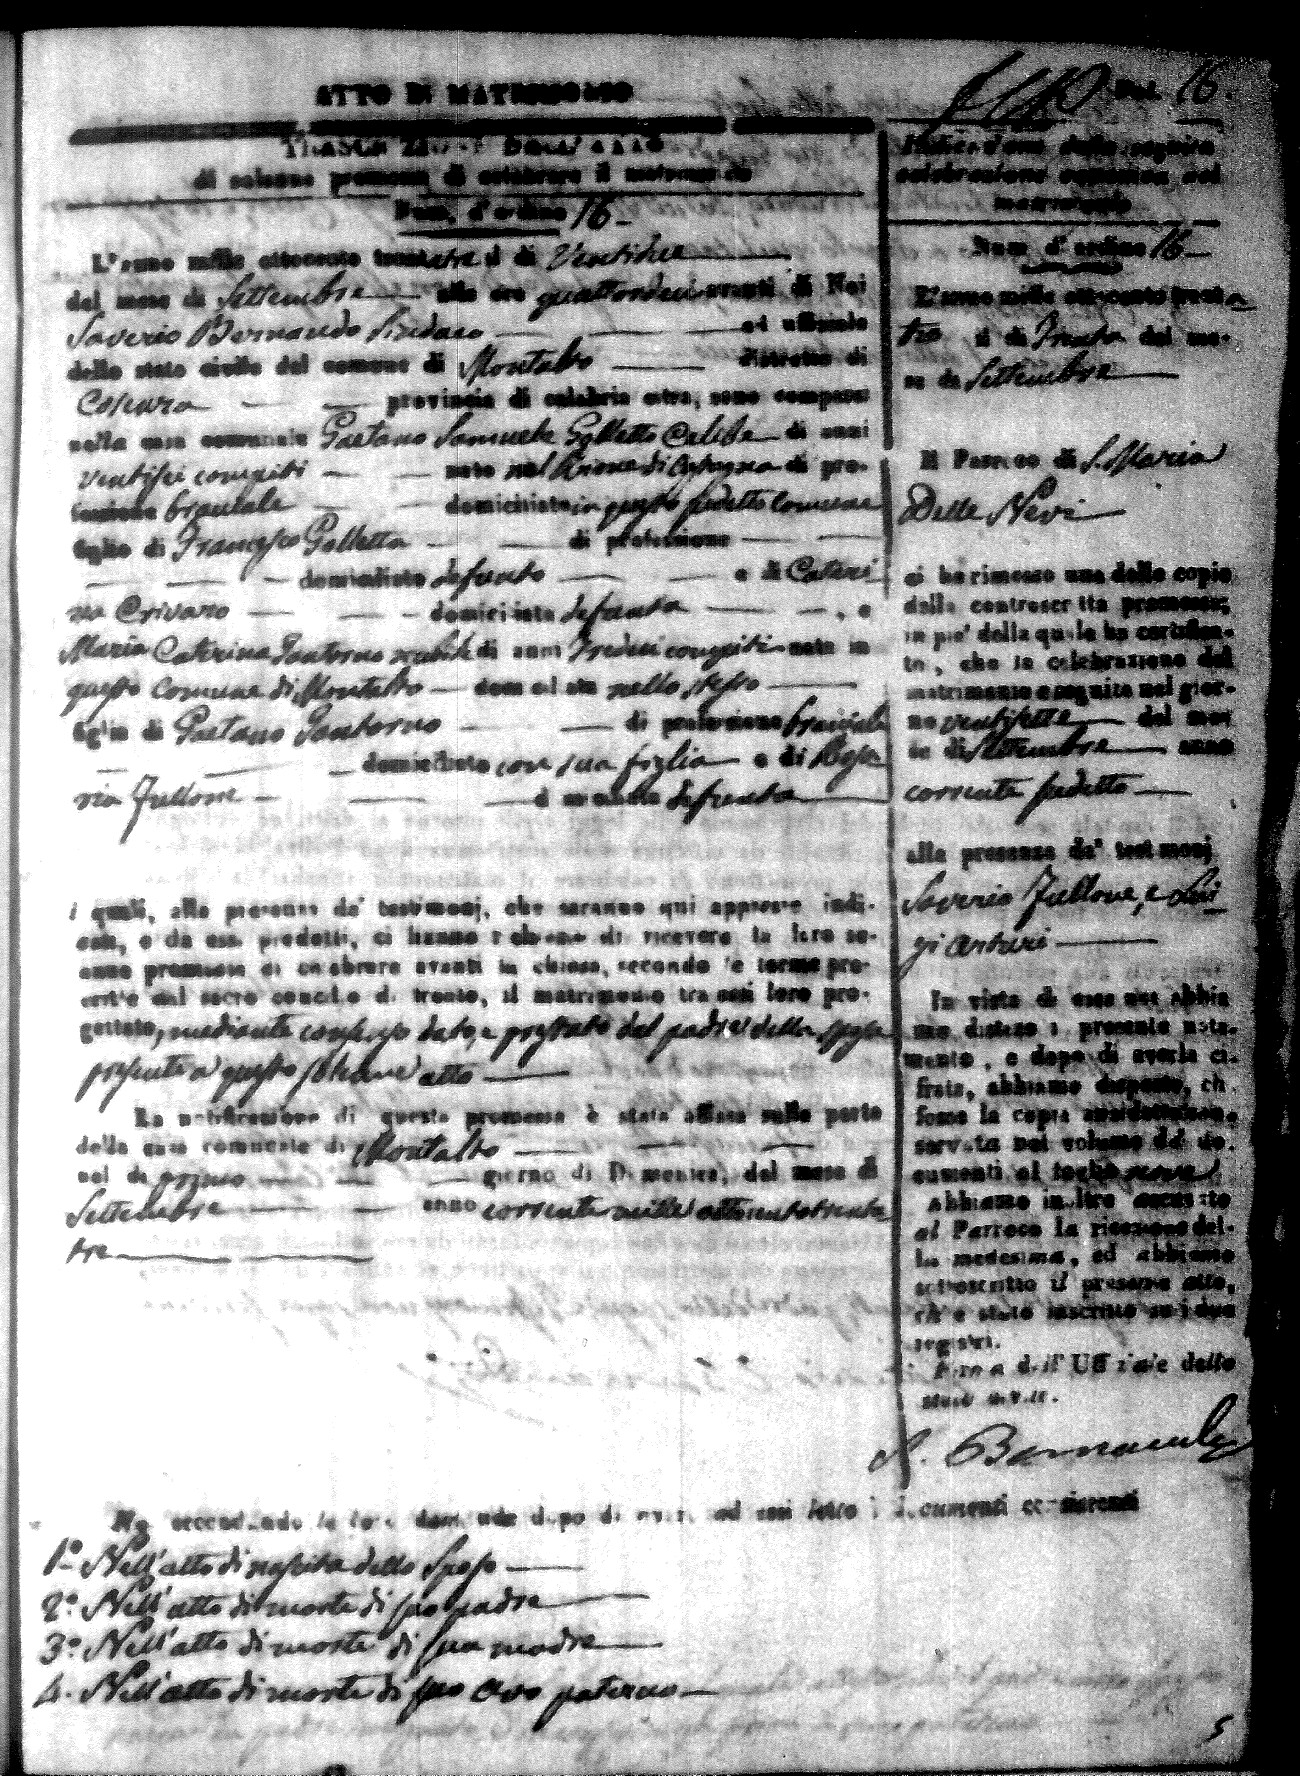 ATTO DI MATRIMONIO
Num. d'ordine 16
di solenne promessa di celebrare il matrimonio
L'anno mille ottocento trentatre il di Ventidue
del mese di Settembre alle ore quattordeci avanti di Noi
Saverio Bernardo Sindaco ed uffiziale
dello stato civile del comune di Montalto distretto di
Cosenza provincia di calabria citra, sono comparsi
nella casa comunale Gaetano Samuele Celibe di anni
ventisei compiti nato di pro-
fessione braciale domiciliato in questo sudetto comune
figlio di Francesco Golletta di professione
domiciliato defunto e di Cateri
na Crivaro domiciliata defunta, e
Maria Caterina Santorno nubile di anni tredeci compiti nata in
questo comune di Montalto domiciliata nello stesso
figlia di Gaetano Santorno di professione braciale
domiciliato con sua figlia e di Rosa
ria Fullone domiciliata defunta
i quali, alla presenza de' testimonj, che saranno qui appresso indi-
cati, e da essi prodotti, ci hanno richiesto di ricevere la loro so-
lenne promessa di celebrare avanti la chiesa, secondo le forme pre-
scritte dal sacro concilio di trento, il matrimonio tra essi loro pro-
gettato, mediante consenso dato, e prestato dal padre della sposa
presente a questo solenne atto
La notificazione di questa promessa è stata affissa sulla porta
della casa comunale di Montalto
nel di primo giorno di Domenica, del mese di
Settembre anno corrente mille ottocento trenta
tre
Ne secondando la loro domanda dopo di aver ad essi letto i documenti consistenti
1.º Nell'atto di nascita dello sposo
2.º Nell'atto di morte di suo padre
3.º Nell'atto di morte di sua madre
4. Nell'atto di morte di suo avo paterno
16.
Indicazione della seguita
celebrazione canonica del
matrimonio
Num d'ordine 16
L'anno mille ottocento trenta
tre il di Trenta del me-
se di Settembre
Il Parroco di S. Maria
Delle Nevi
ci ha rimesso una delle copie
della controscritta promessa;
in piè della quale ha certifica-
to, che la celebrazione del
matrimonio è seguita nel gior-
no ventisette del mo
se di Settembre anno
corrente sudetto
alla presenza de' testimonj
Saverio Fullone, e Lui
gi Anturi
In vista di essa noi abbia
mo disteso il presente nota-
mento, e dopo di averla ci-
frata, abbiamo disposto, ch
fosse la copia anzidetta con-
servata nel volume de' do-
cumenti al foglio nove
Abbiamo inoltre accusato
al Parroco la ricezione del-
la medesima, ed abbiamo
sottoscritto il presente atto,
ch'è stato inscritto su i due
registri.
Firma dell'Uffiziale dello
stato civile.
S. Bernardo
5